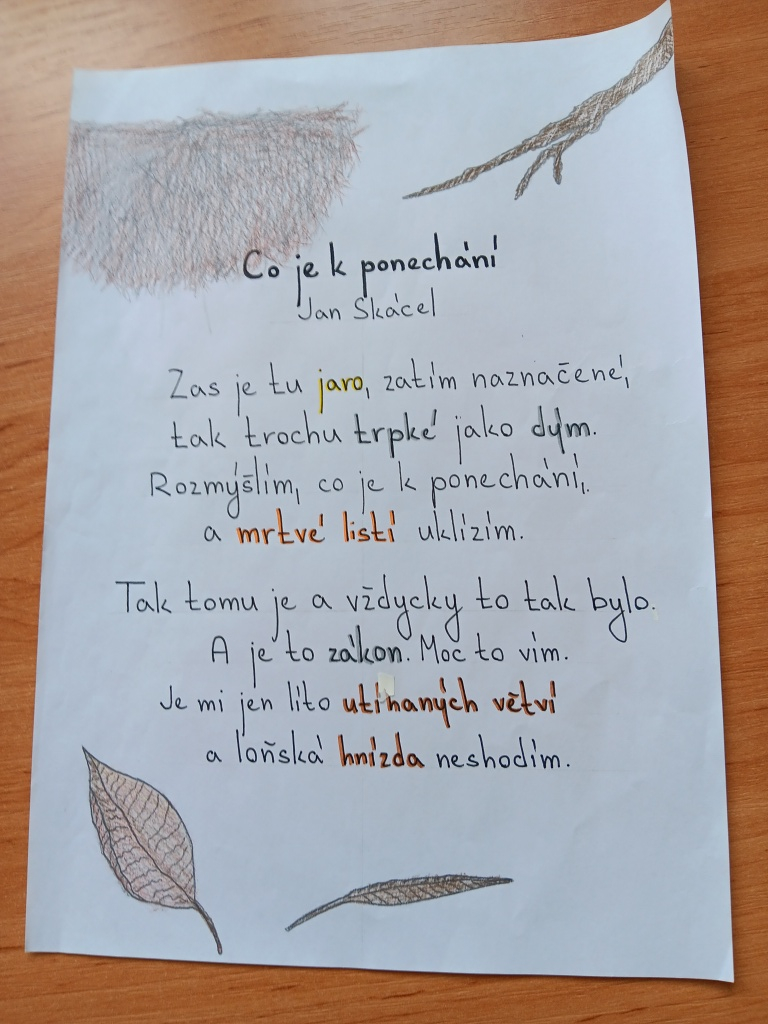 Co je k ponechání
Jan Skácel
Zas je tu jaro, zatím naznačené,
tak trochu trpké jako dým.
Rozmýšlím, co je k ponechání,
a mrtvé listí uklízím.
Tak tomu je a vždycky to tak bylo.
A je to zákon. Moc to vím.
Je mi jen líto utínaných větví
a loňská hnízda neshodím.